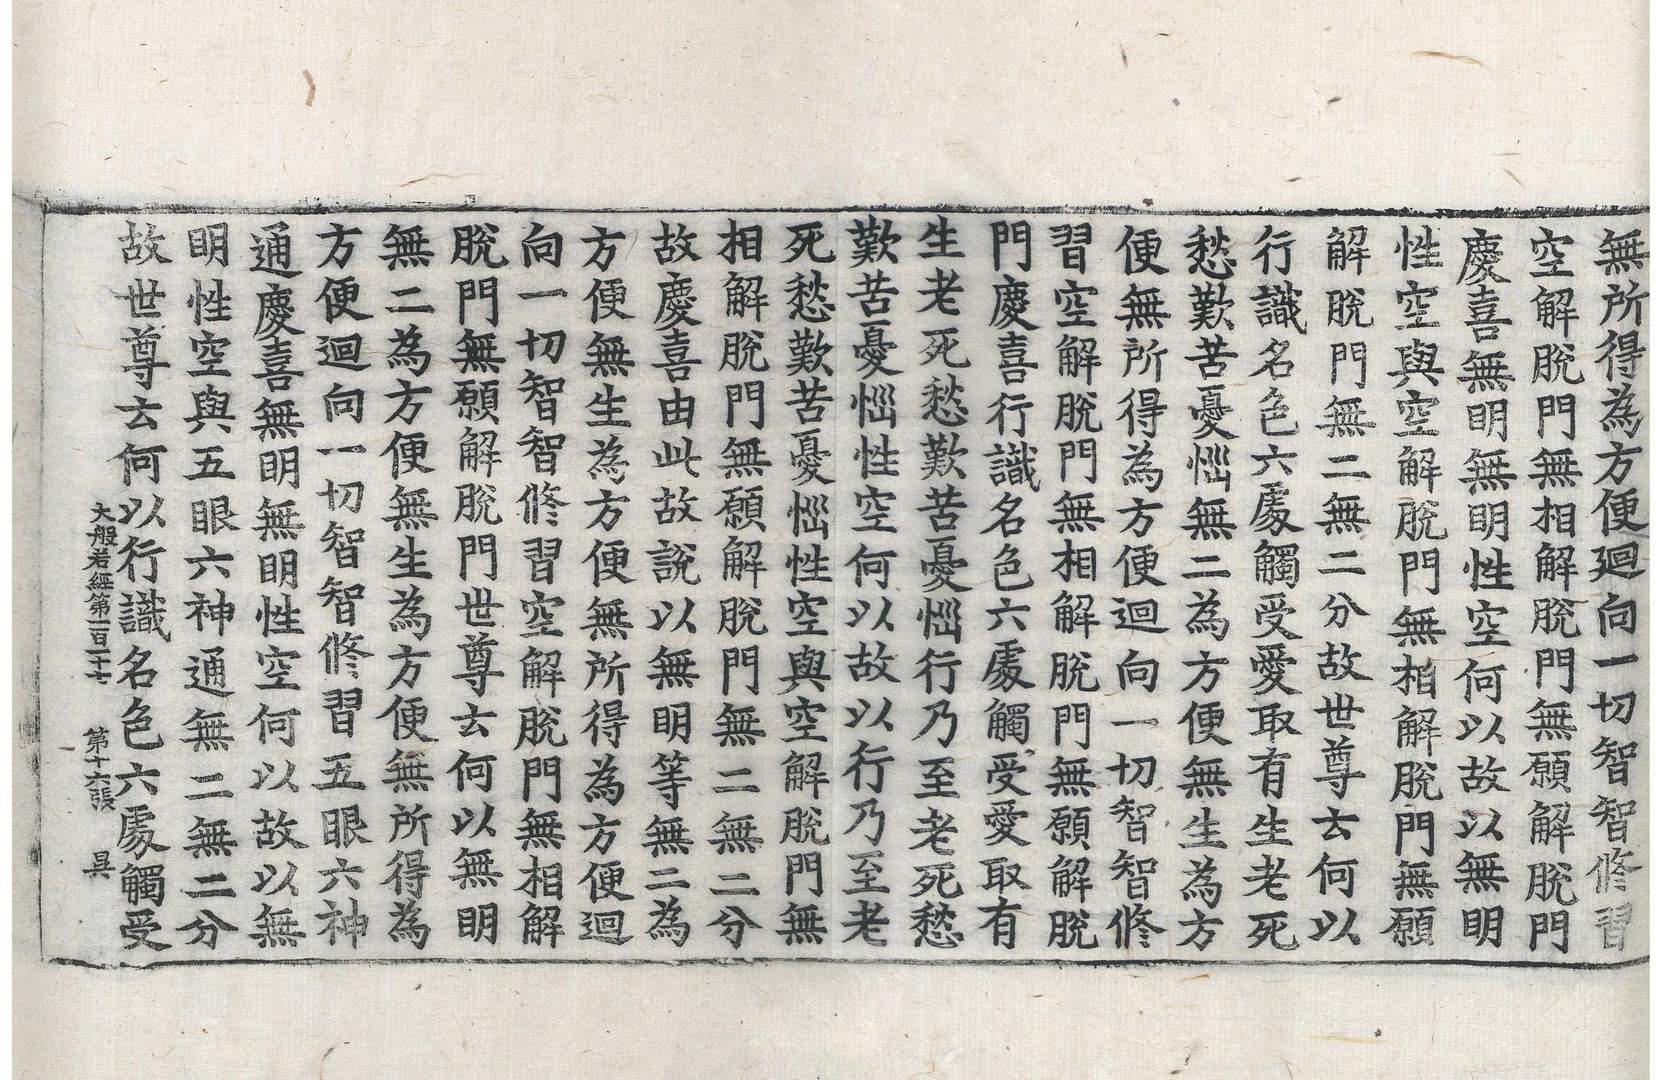 無所得為方便廻向一切智智修習
空解脫門無相解脫門無願解脫門
慶喜無明無明性空何以故以無明
性空與空解脫門無相解脫門無願
解脫門無二無二分故世尊云何以
行識名色六處觸受愛取有生老死
愁歎苦憂惱無二為方便無生為方
便無所得為方便迴向一切智智修
習空解脫門無相解脫門無願解脫
門慶喜行識名色六處觸受愛取有
生老死愁歎苦憂惱行乃至老死愁
歎苦憂惱性空何以故以行乃至老
死愁歎苦憂惱性空與空解脫門無
相解脫門無願解脫門無二無二分
故慶喜由此故說以無明等無二為
方便無生為方便無所得為方便迴
向一切智智修習空解脫門無相解
脫門無願解脫門世尊云何以無明
無二為方便無生為方便無所得為
方便迴向一切智智修習五眼六神
通慶喜無明無明性空何以故以無
明性空與五眼六神通無二無二分
故世尊云何以行識名色六處觸受
大般若經第一百一十七 第十六張 昃